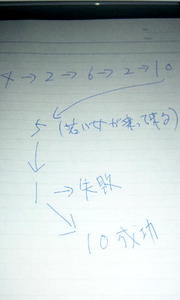 4→2→6→2→10
5 (若い女が乗って来る)
↓
1 → 失敗
10 成功